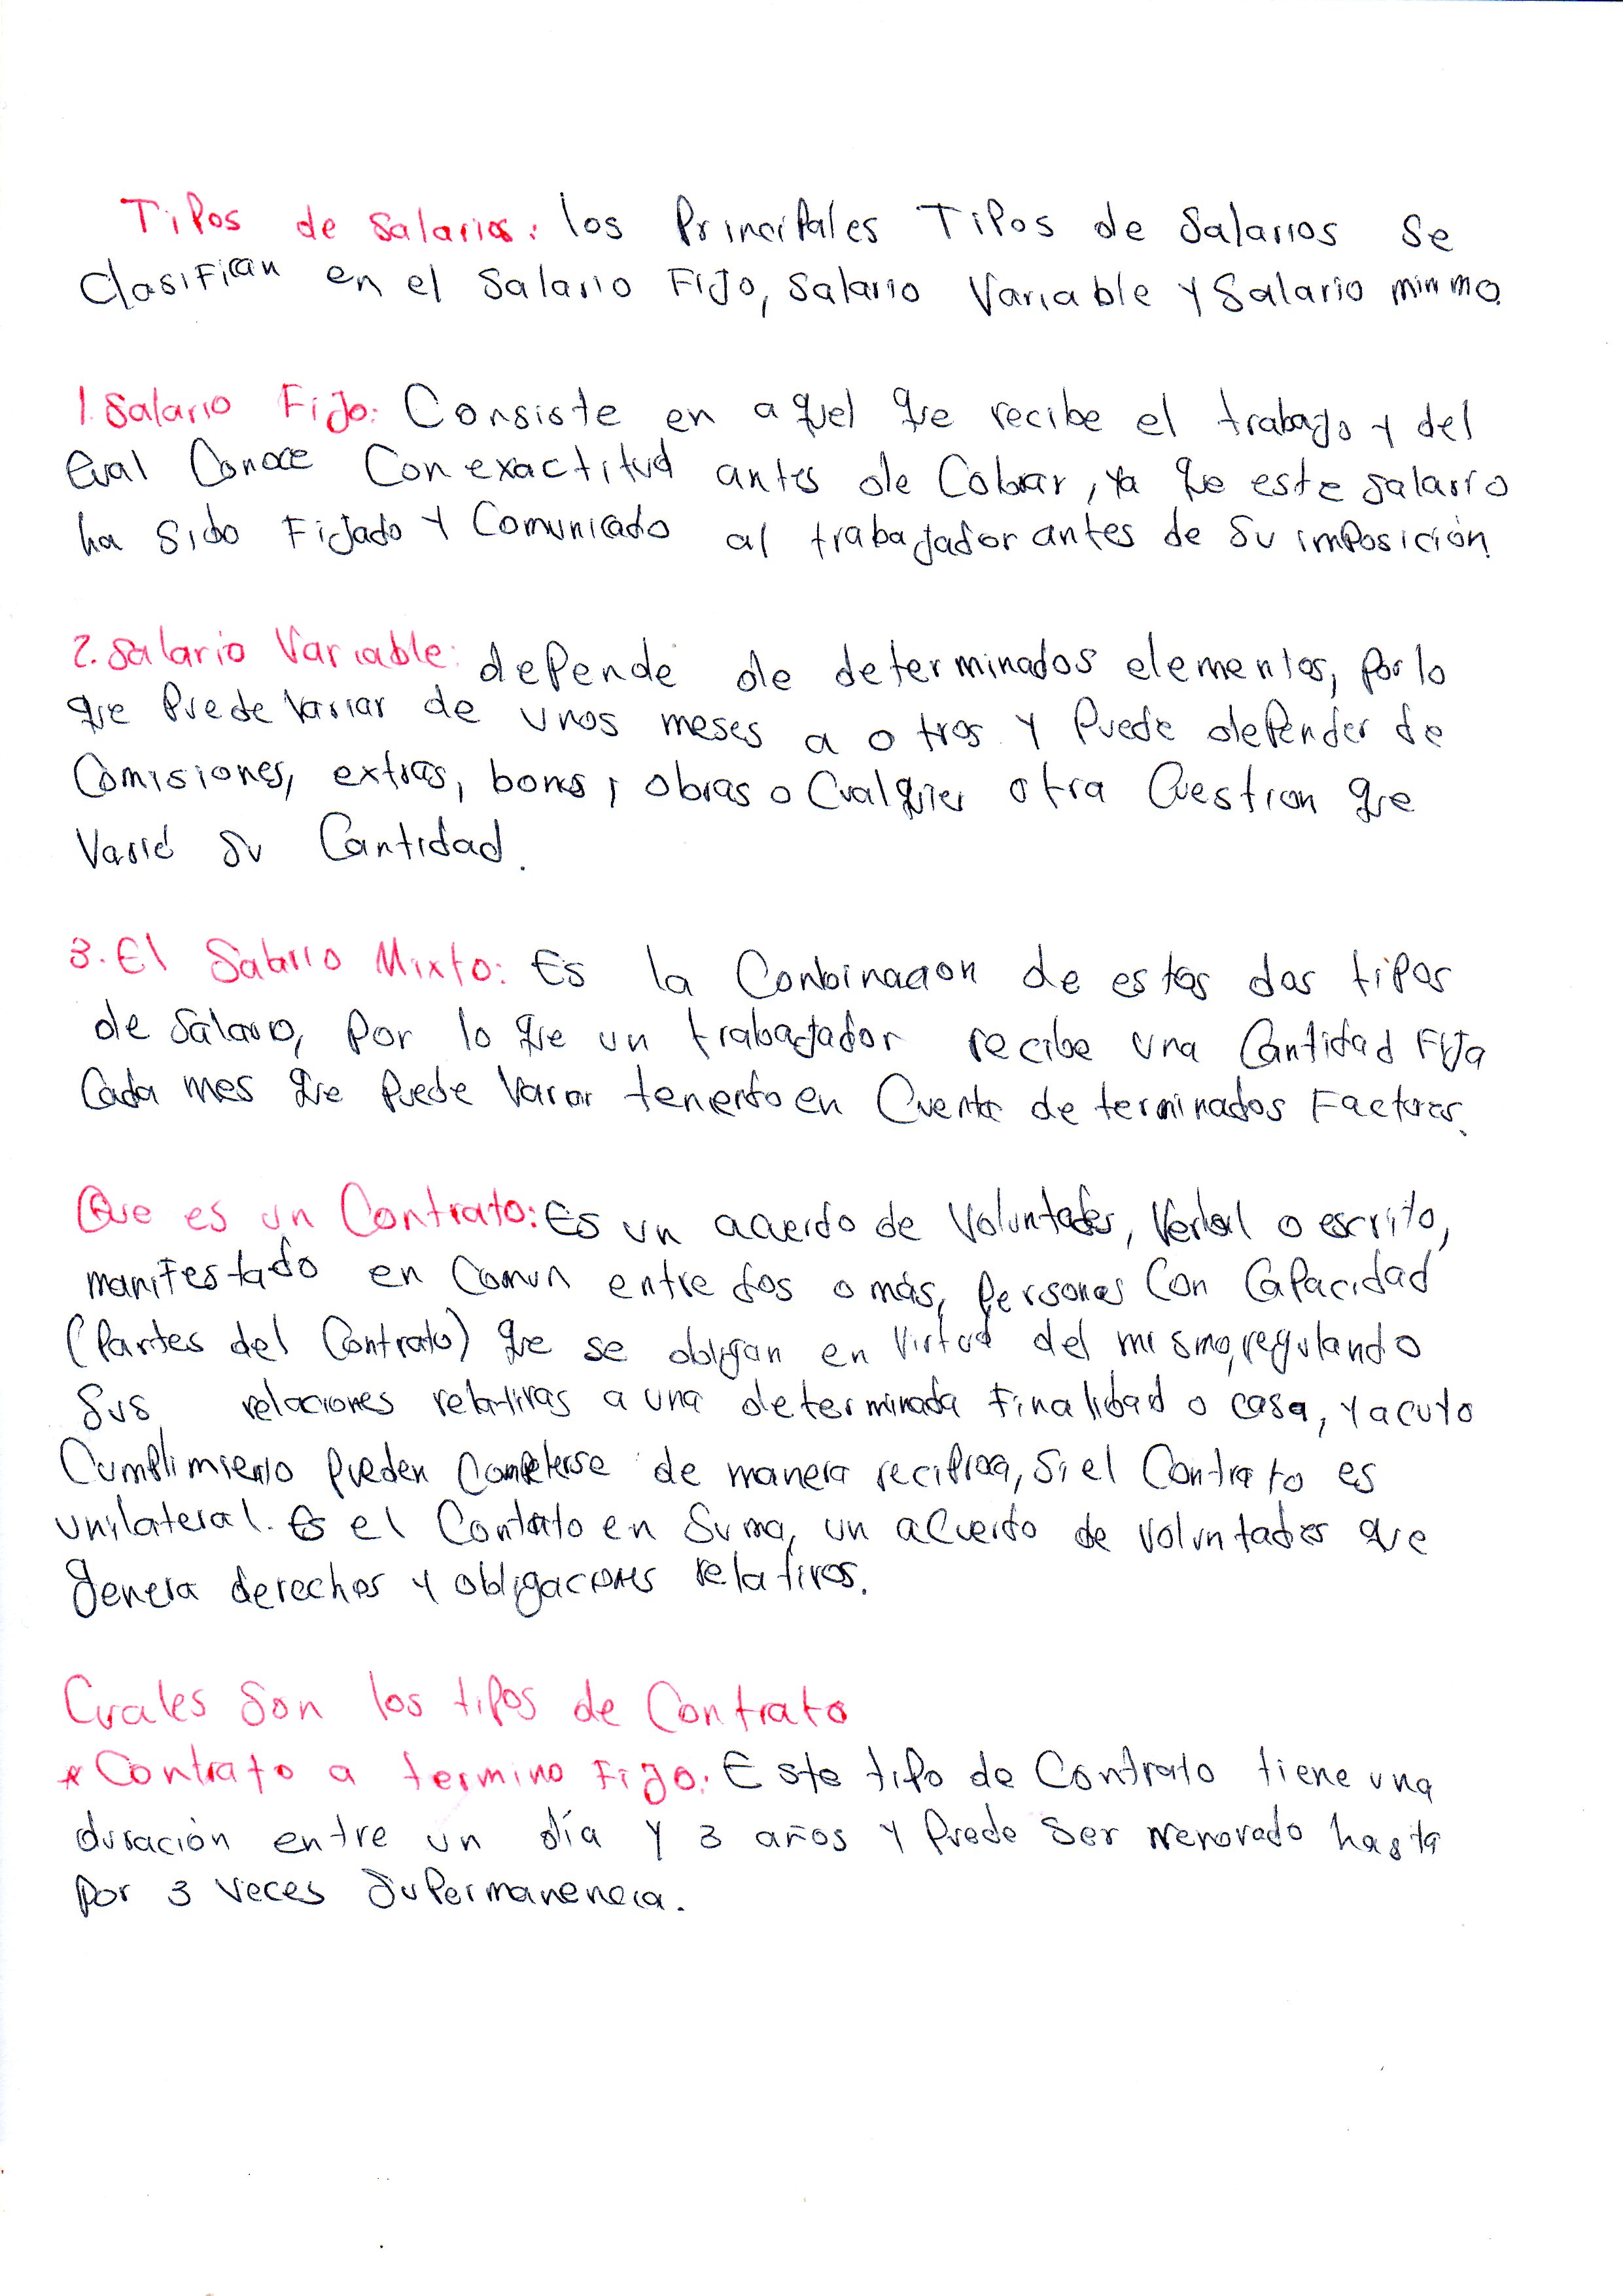 Tipos de salarios: los Principales Tipos de Salarios se
Clasifican en el Salario Fijo, Salario Variable y Salario minmo.
1. Salario Fijo: Consiste en aquel que recibe el trabajo y del
cual Conoce Con exactitud antes de Cobrar, ya que este salario
ha sido Fijado y Comunicado al trabajador antes de su imposición.
2. Salario Variable: depende de determinados elementos, por lo
que Puede Variar de unos meses a otros y Puede depender de
Comisiones, extras, bonos, obras o Cualquier otra Cuestion que
Varié su Cantidad.
3. El Salario Mixto: Es la Conbinacion de estos dos tipos
de Salario, Por lo que un trabajador recibe una Cantidad Fija
Cada mes que Puede Variar teniendo en Cuenta determinados Factores.
Que es un Contrato: Es un acuerdo de Voluntades, Verbal o escrito,
manifestado en Comun entre dos o más, Personas Con Capacidad
(Partes del Contrato) que se obligan en Virtud del mismo, regulando
Sus relaciones relativas a una determinada Finalidad o casa, y a cuyo
Cumplimiento Pueden de manera reciproca, Si el Contrato es
unilateral. Es el Contrato en Suma, un acuerdo de voluntades que
genera derechos y obligaciones relativos.
Cuales Son los tipos de Contrato
* Contrato a termino Fijo: Este tipo de Contrato tiene una
duración entre un día y 3 años y Puede Ser renovado hasta
Por 3 Veces Su Permanencia.